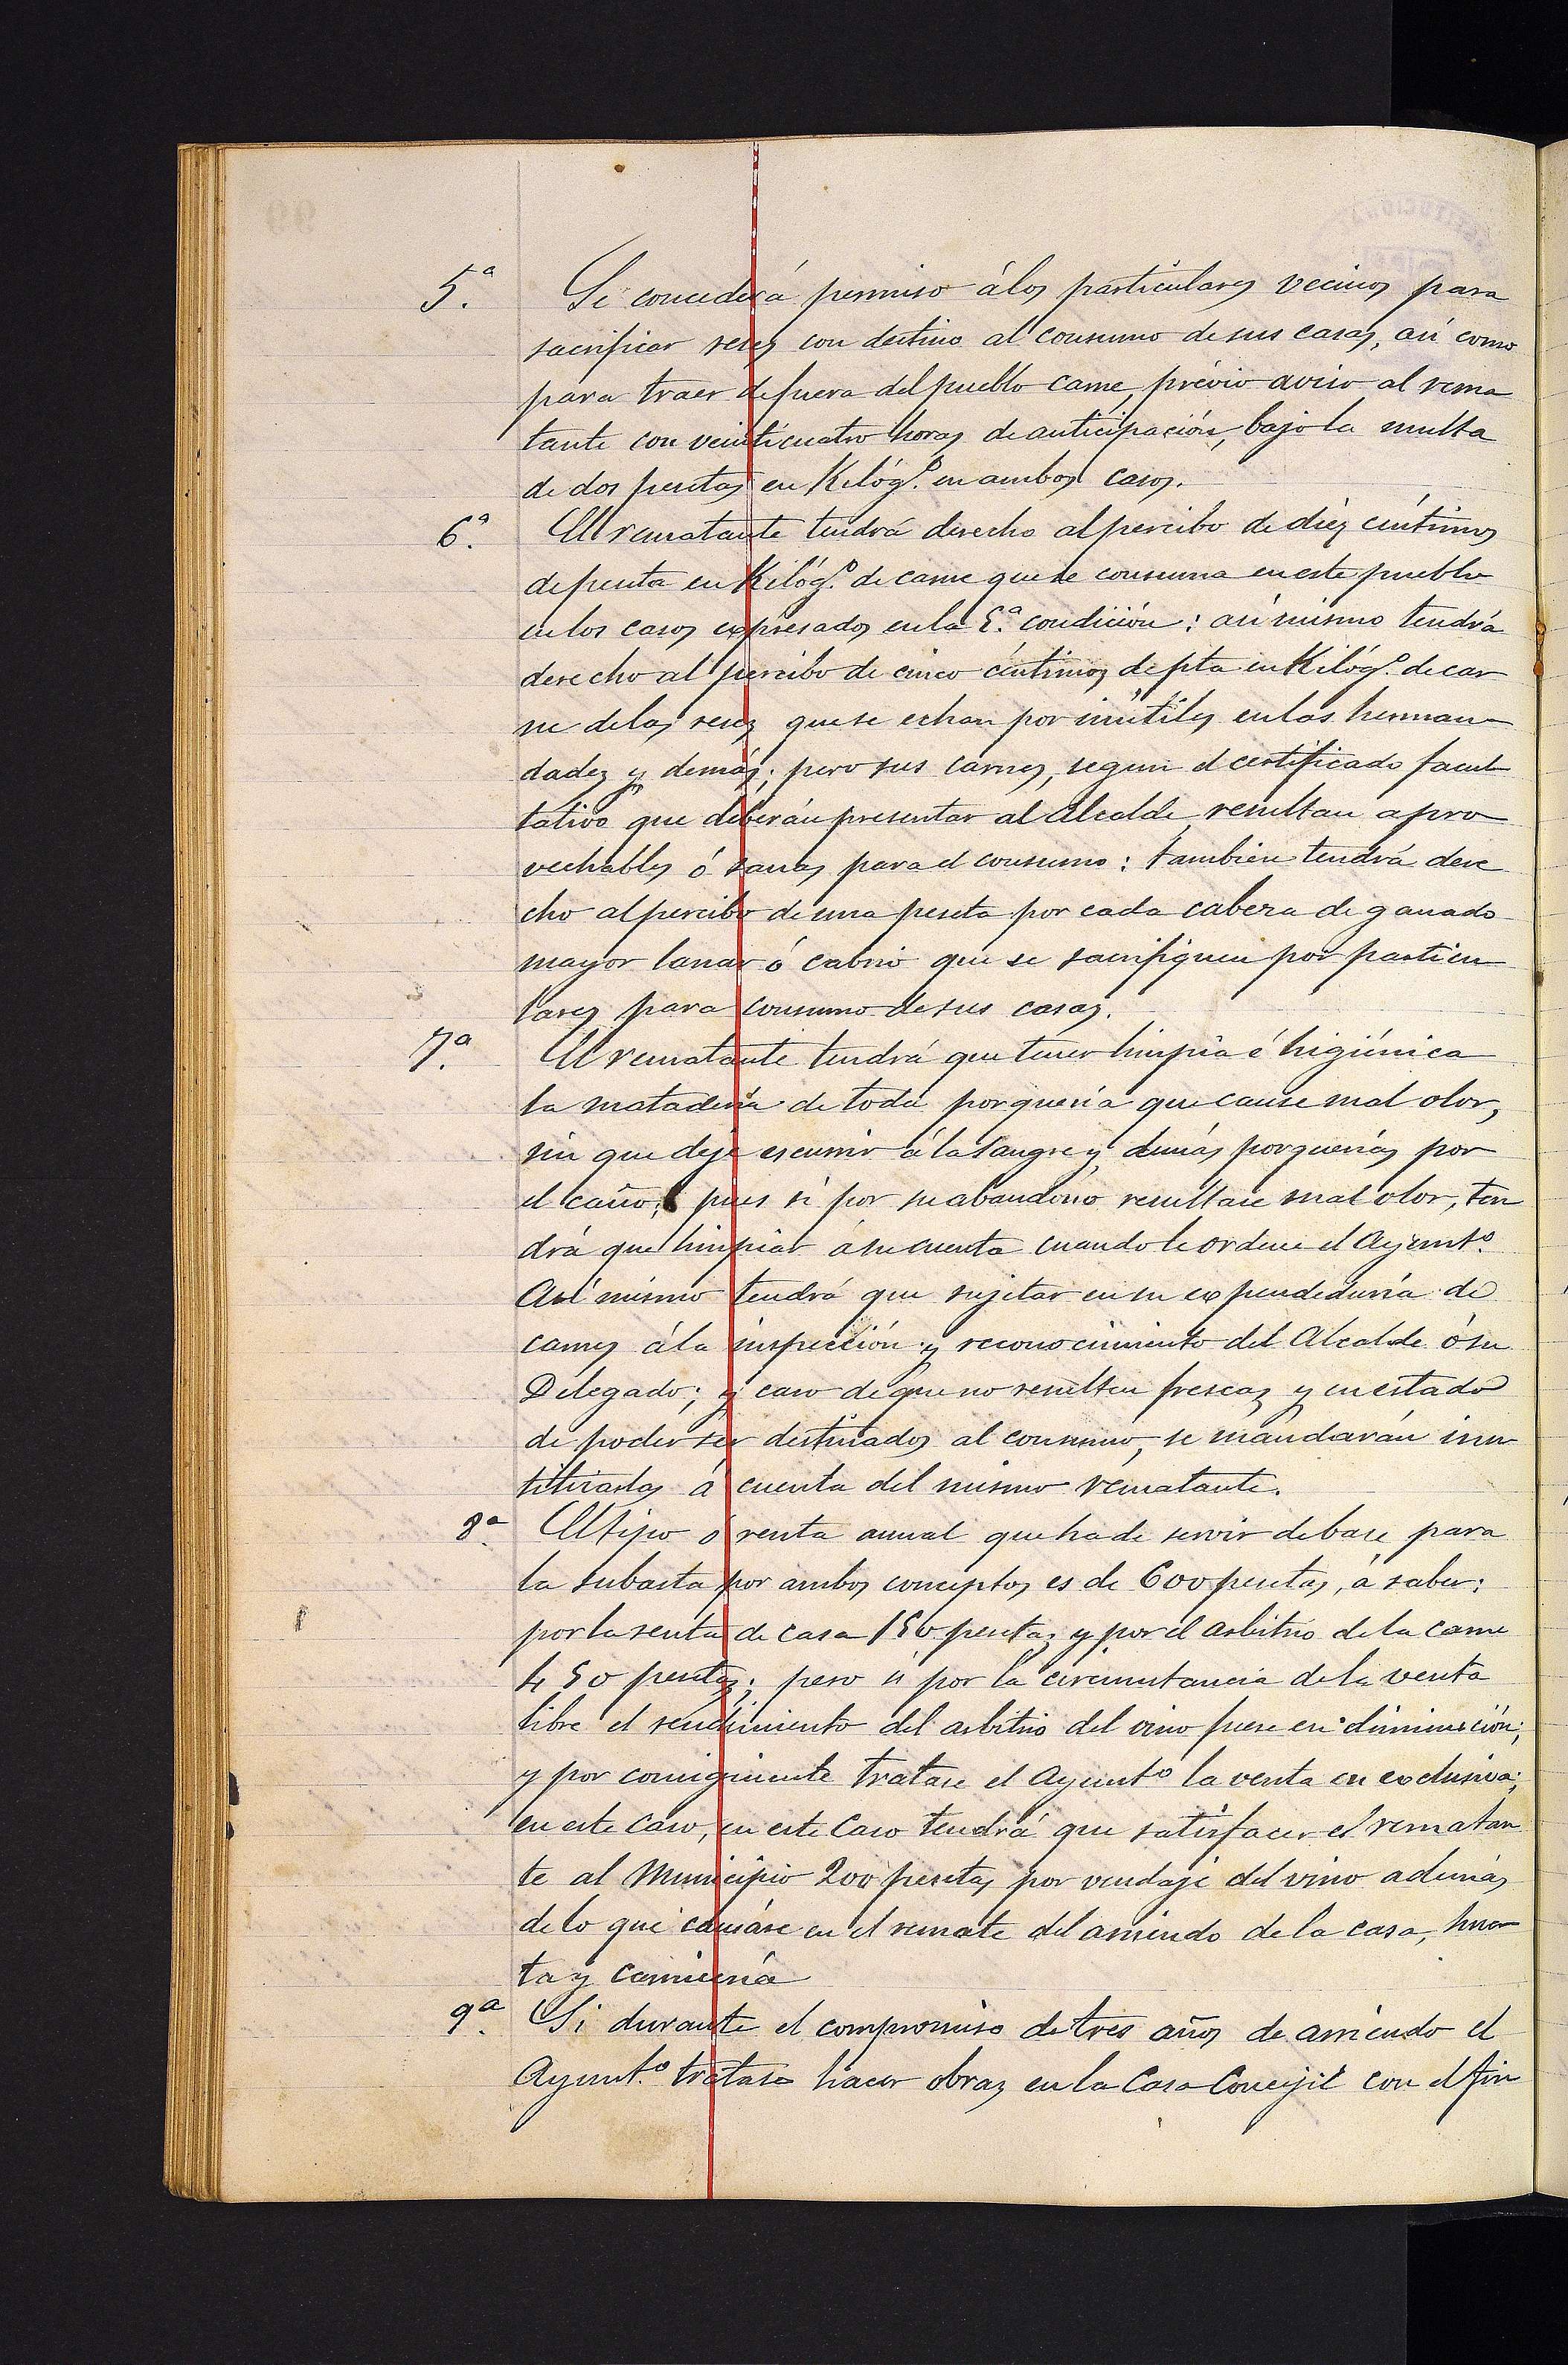 5.ª Se concederá permiso á los particulares vecinos para
sacrificar reses con destino al consumo de sus casas, así como
para traer de fuera del pueblo carne, prévio aviso al rema
tante con veinticuatro horas de anticipación, bajo la multa
de dos pesetas en Kilóg.º en ambos casos.
6.ª El rematante tendrá derecho al percibo de diéz céntimos
de peseta en Kilóg.º de carne que se consuma en este pueblo
en los casos expresados en la 5.ª condición: así mismo tendrá
derecho al percibo de cinco céntimos de pta en Kilóg.º de car
ne de las reses que se echan por inútiles en las herman
dades y demás; pero sus carnes, segun el certificado facul
tativo que deberán presentar al Alcalde, resultan apro
vechables ó sanas para el consumo: tambien tendrá dere
cho al percibo de una peseta por cada cabeza de ganado
mayor lanar ó cabrio que se sacrifiquen por particu
lares para consumo de sus casas.
7.ª El rematante tendrá que tener limpia é higiénica
la mataderia de toda porqueria que cause mal olor,
sin que deje escurrir á la sangre y demás porquerias por
el caño; pues si por su abandono resultase mal olor, ten
drá que limpiar á su cuenta cuando le ordene el Ayunt.º
Así mismo tendrá que sujetar en su expendeduria de
carnes á la inspección y reconocimiento del Alcalde ó su
Delegado; y caso de que no resulten frescas y en estado
de poder ser destinados al consumo, se mandarán inu
tilizarlas á cuenta del mismo rematante.
8.ª El tipo ó renta anual que ha de servir de base para
la subasta por ambos conceptos es de 600 pesetas, á saber:
por la renta de casa 150 pesetas y por el arbitrio de la carne
450 pesetas; pero si por la circunstancia de la venta
libre el rendimiento del arbitrio del vino fuese en diminución;
y por consiguiente tratase el Ayunt.º la venta en exclusiva;
en este caso, en este caso tendrá que satisfacer el rematan
te al Municipio 200 pesetas por vendaje del vino además
de lo que causáre en el remate del arriendo de la casa, huer
ta y carnicería
9.ª Si durante el compromiso de tres años de arriendo el
Ayunt.º tratase hacer obras en la Casa Concejil con el fin